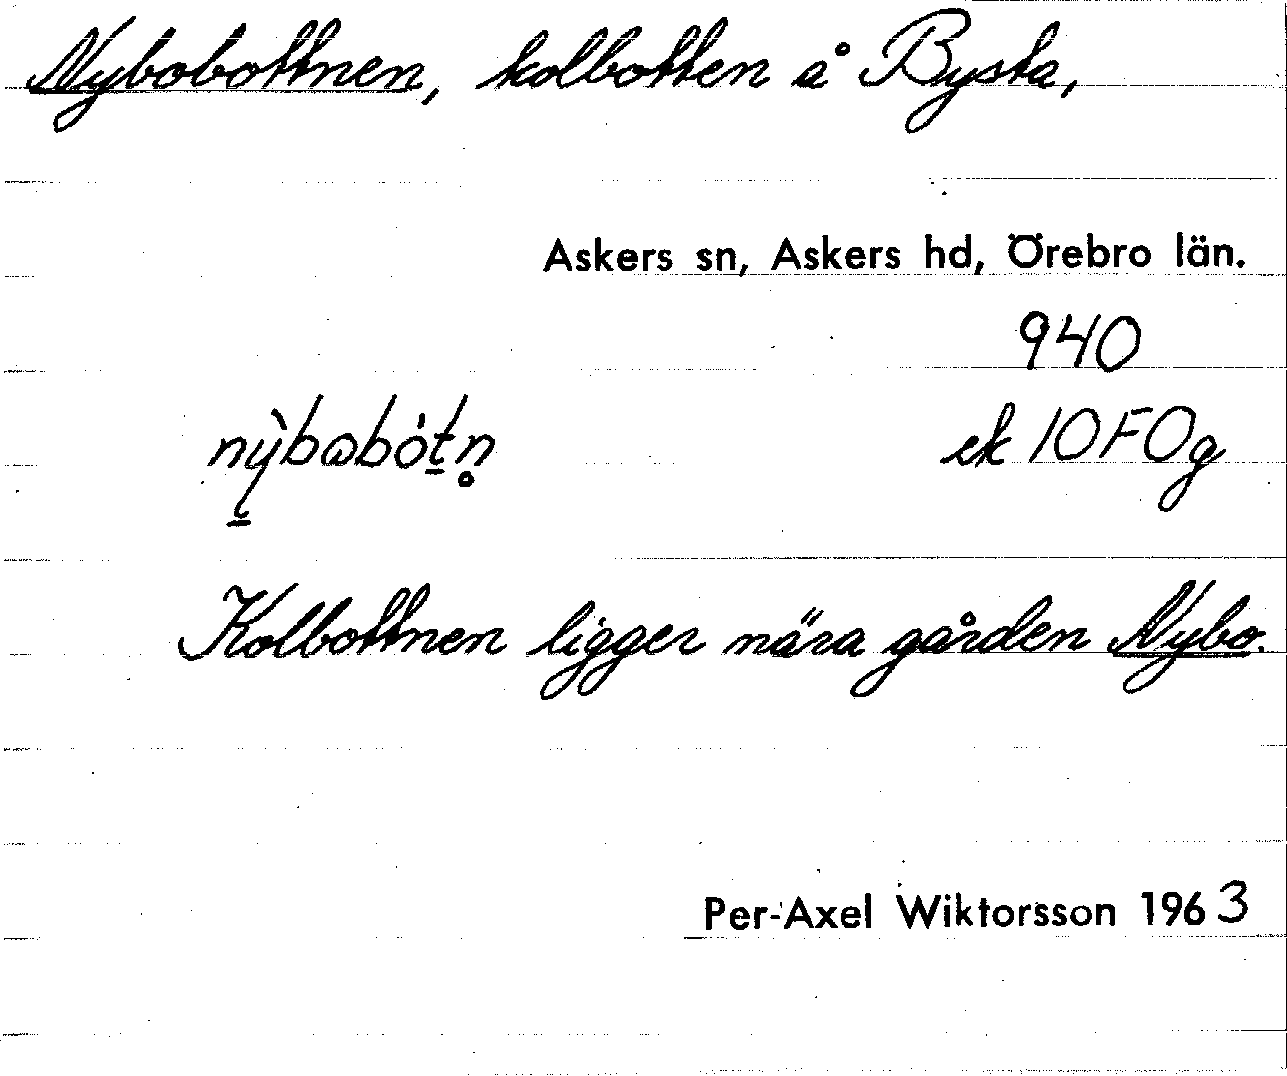 Nybobottnen, kolbotten å Bysta,
Askers sn, Askers hd, Örebro län.
940
nỳ̱bωbót̠n̥ ek 10F0g
Kolbottnen ligger nära gården Nybo.
Per-Axel Wiktorsson 1963